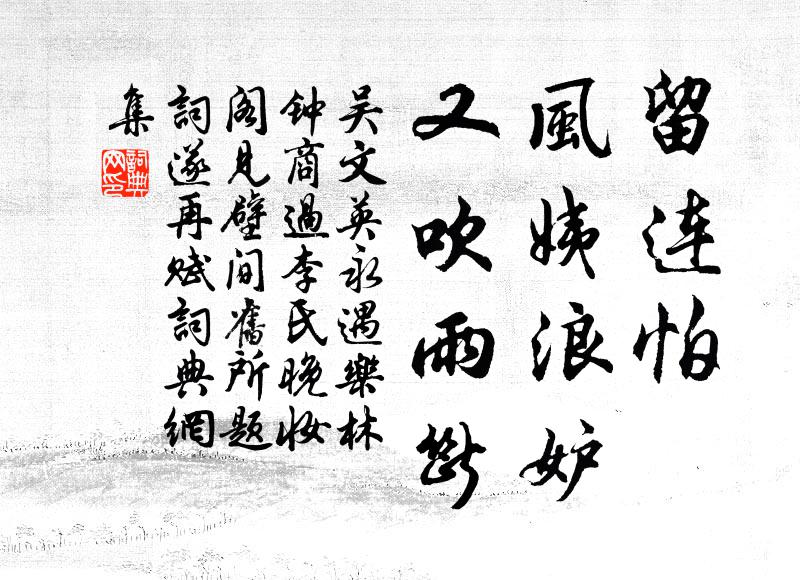 留連怕
風姨浪妒
又吹雨斷
吴文英永遇樂林
钟商過李氏晚妆
阁見壁间舊所题
詞遂再赋詞典網
集
詞典
网印